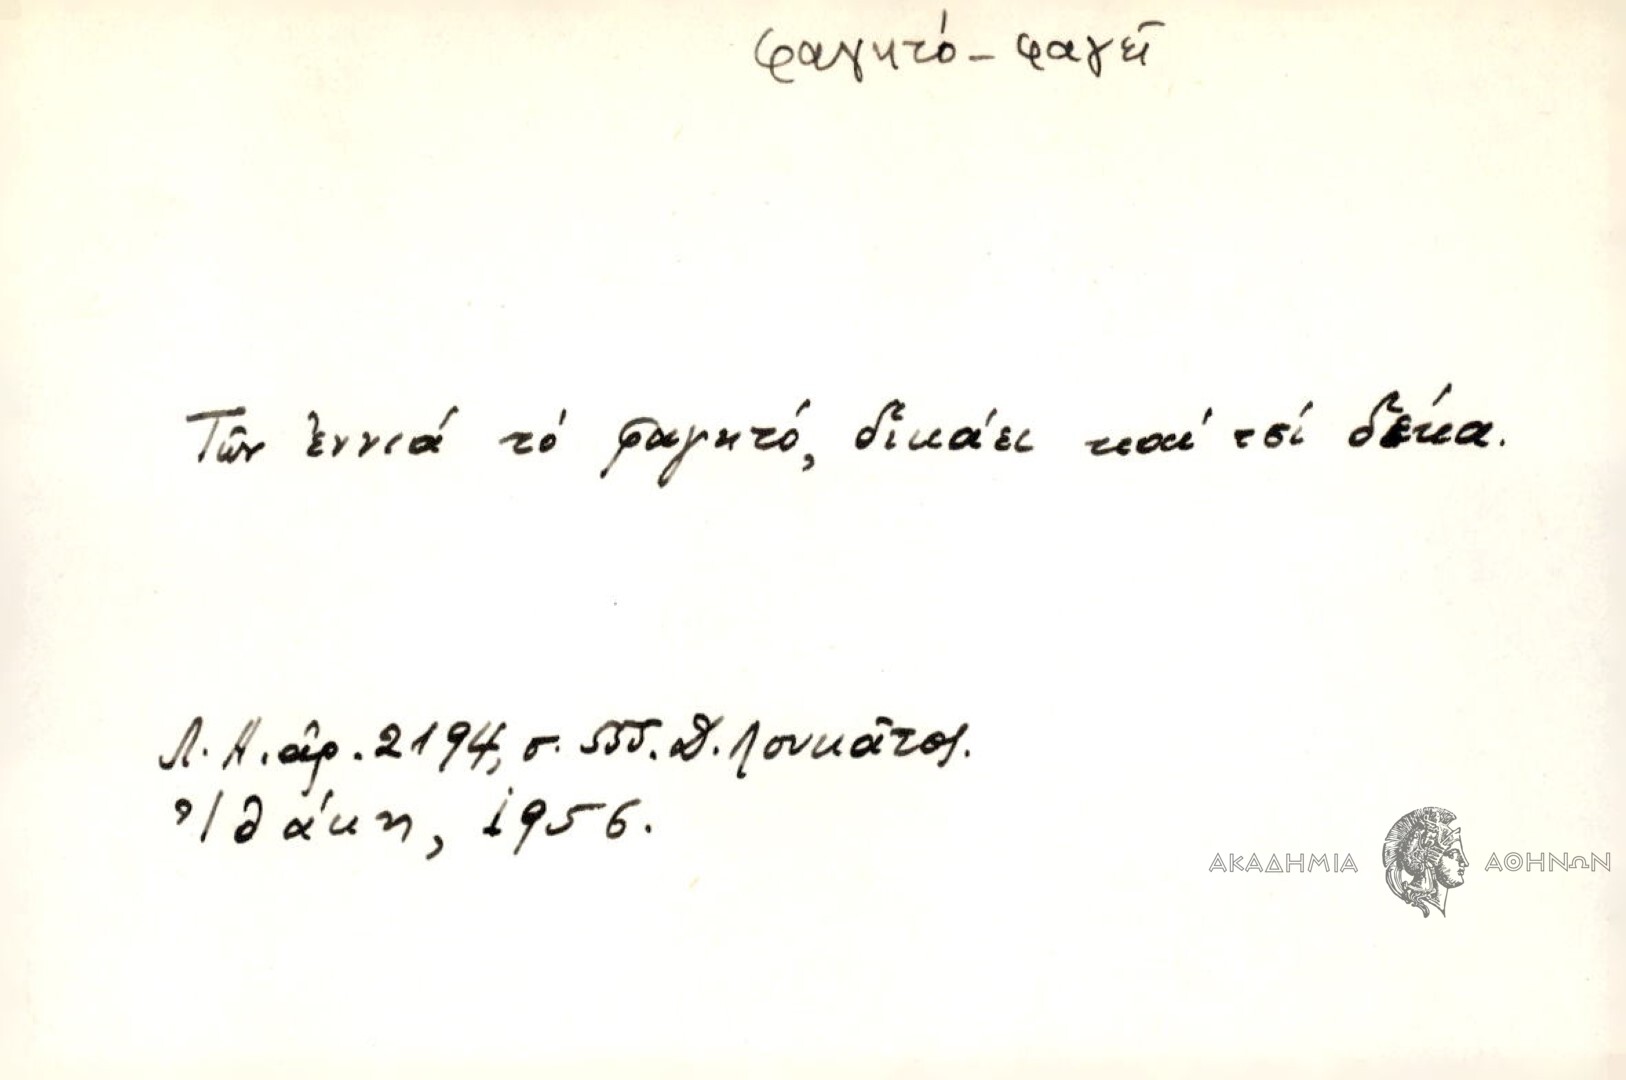 φαγητό - φαγεῖ
Τῶν ἐννιά τό φαγητό, δικάει καί τσί δέκα.
Λ. Α. ἀρ. 2194, σ. 555. Δ. Λουκᾶτος.
Ἰθάκη, 1956.
ΑΚΑΔΗΜΙΑ ΑΘΗΝΩΝ